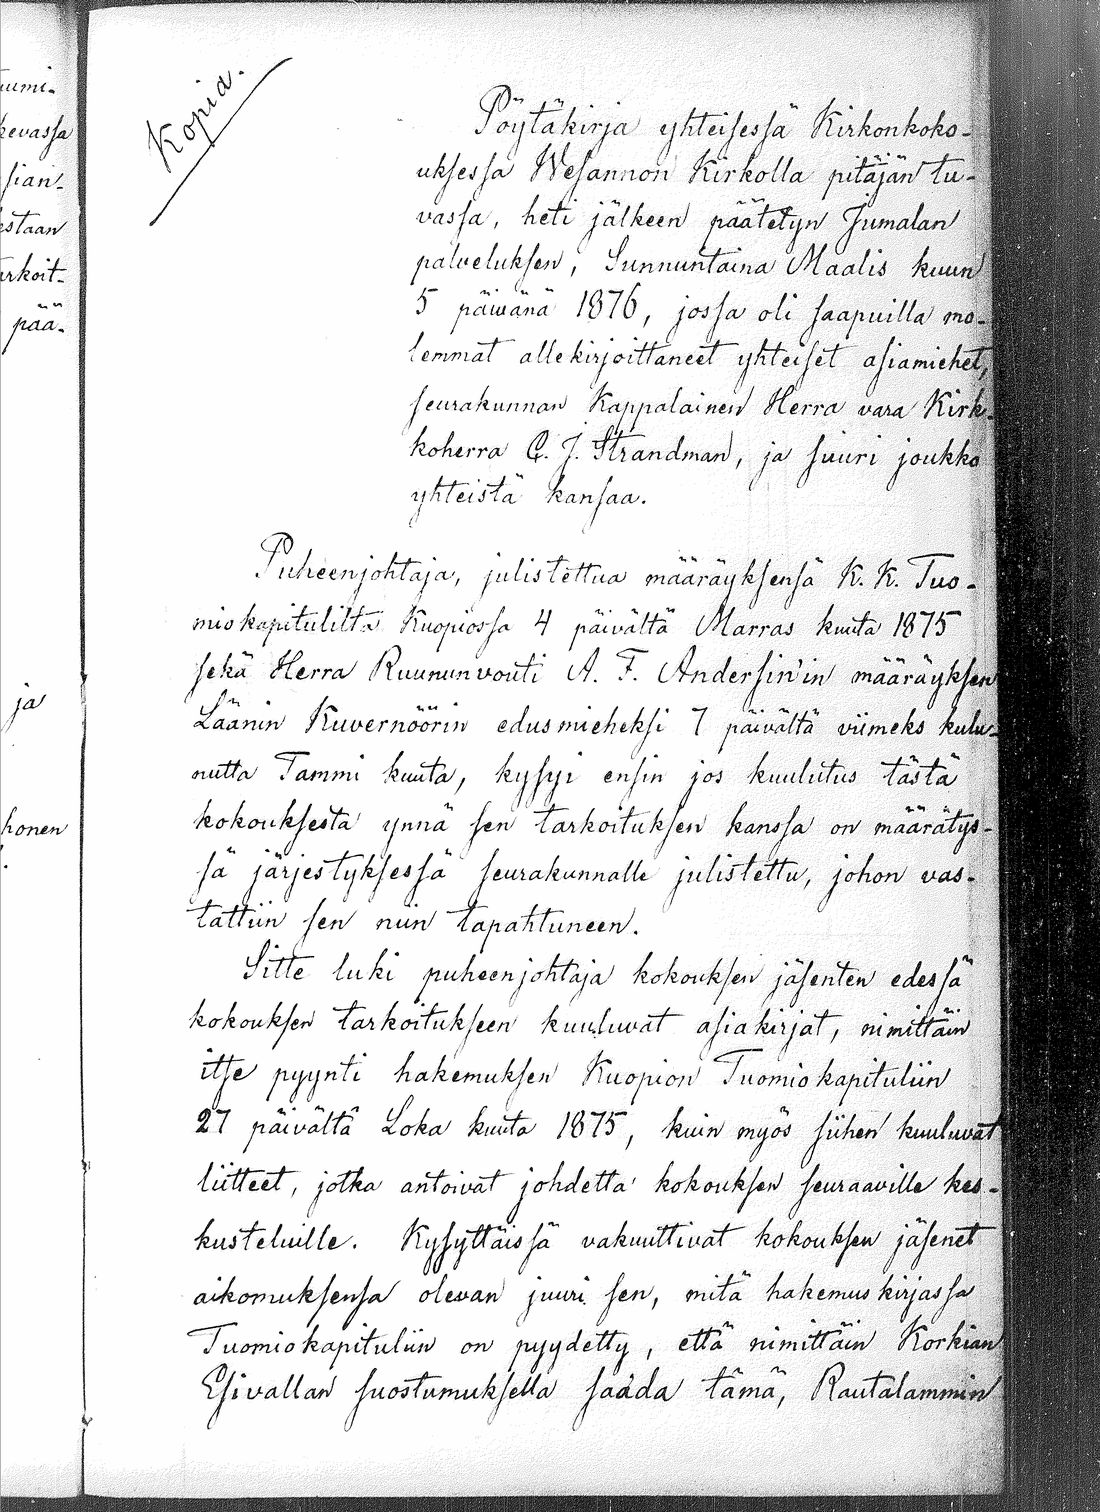 uumi-
kevassa
sian-
estaan
arkoit-
pää-
ja
honen
Kopia.
Pöytäkirja yhteisessä Kirkonkoko-
uksessa Wesannon Kirkolla pitäjän tu-
vassa, heti jälkeen päätetyn Jumalan
palveluksen, Sunnuntaina Maalis kuun
5 päivänä 1876, jossa oli saapuilla mo-
lemmat allekirjoittaneet yhteiset asiamiehet,
seurakunnan Kappalainen Herra vara Kirk-
koherra C. J. Strandman, ja suuri joukko
yhteistä kansaa.
Puheenjohtaja, julistettua määräyksensä K. K. Tuo-
miokapitulilta Kuopiossa 4 päivältä Marras kuuta 1875
sekä Herra Ruununvouti A. F. Andersin'in määräyksen
Läänin Kuvernöörin edusmieheksi 7 päivältä viimeks kulu-
nutta Tammi kuuta, kysyi ensin jos kuulutus tästä
kokouksesta ynnä sen tarkoituksen kanssa on määrätys-
sä järjestyksessä seurakunnalle julistettu, johon vas-
tattiin sen niin tapahtuneen.
Sitte luki puheenjohtaja kokouksen jäsenten edessä
kokouksen tarkoitukseen kuuluvat asiakirjat, nimittäin
itse pyynti hakemuksen Kuopion Tuomiokapituliin
27 päivältä Loka kuuta 1875, kuin myös siihen kuuluvat
liitteet, jotka antoivat johdetta kokouksen seuraaville kes-
kusteluille. Kysyttäissä vakuuttivat kokouksen jäsenet
aikomuksensa olevan juuri sen, mitä hakemuskirjassa
Tuomiokapituliin on pyydetty, että nimittäin Korkian
Esivallan suostumuksella saada tämä, Rautalammin